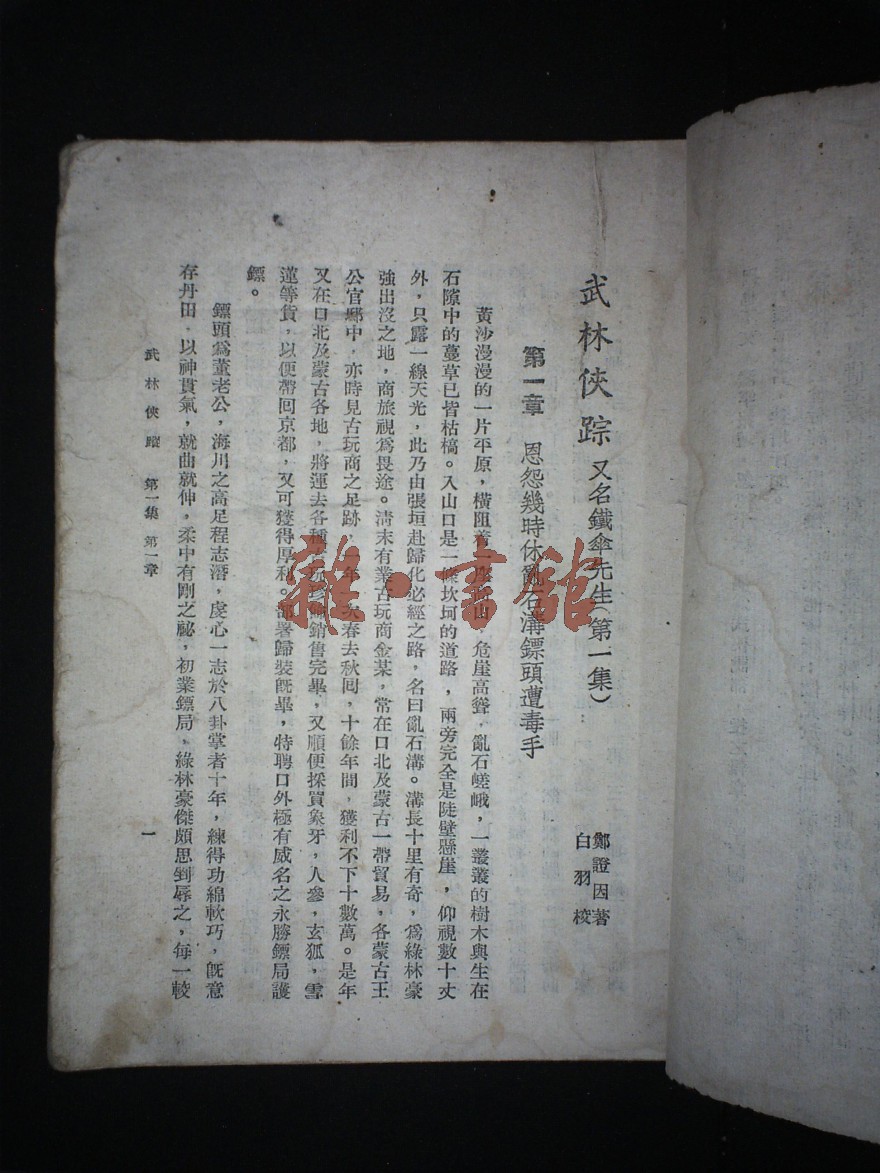 武林俠踪 又名鐵傘先生（第一集）
鄭證因著
白羽校
第一章 恩怨幾時休亂石溝鏢頭遭毒手
黃沙漫漫的一片平原，橫阻着一座山，危崖高聳，亂石嵯峨，一叢叢的樹木與生在
石隙中的蔓草已皆枯槁。入山口是一條坎坷的道路，兩旁完全是陡壁懸崖，仰視數十丈
外，只露一線天光，此乃由張垣赴歸化必經之路，名曰亂石溝。溝長十里有奇，爲綠林豪
強出沒之地，商旅視爲畏途。清末有業古玩商金某，常在口北及蒙古一帶貿易，各蒙古王
公官邸中，亦時見古玩商之足跡，一年一次春去秋回，十餘年間，獲利不下十數萬。是年
又在口北及蒙古各地，將運去各種古玩珍飾銷售完畢，又順便採買象牙，人參，玄狐，雪
蓮等貨，以便帶回京都，又可獲得厚利。部署歸裝既畢，特聘口外極有威名之永勝鏢局護
鏢。
鏢頭爲董老公，海川之高足程志潛，虔心一志於八卦掌者十年，練得功綿軟巧，既意
存丹田，以神貫氣，就曲就伸，柔中有剛之祕，初業鏢局，綠林豪傑頗思剉辱之，每一較
武林俠蹤 第一集 第一章
一
雜·書館